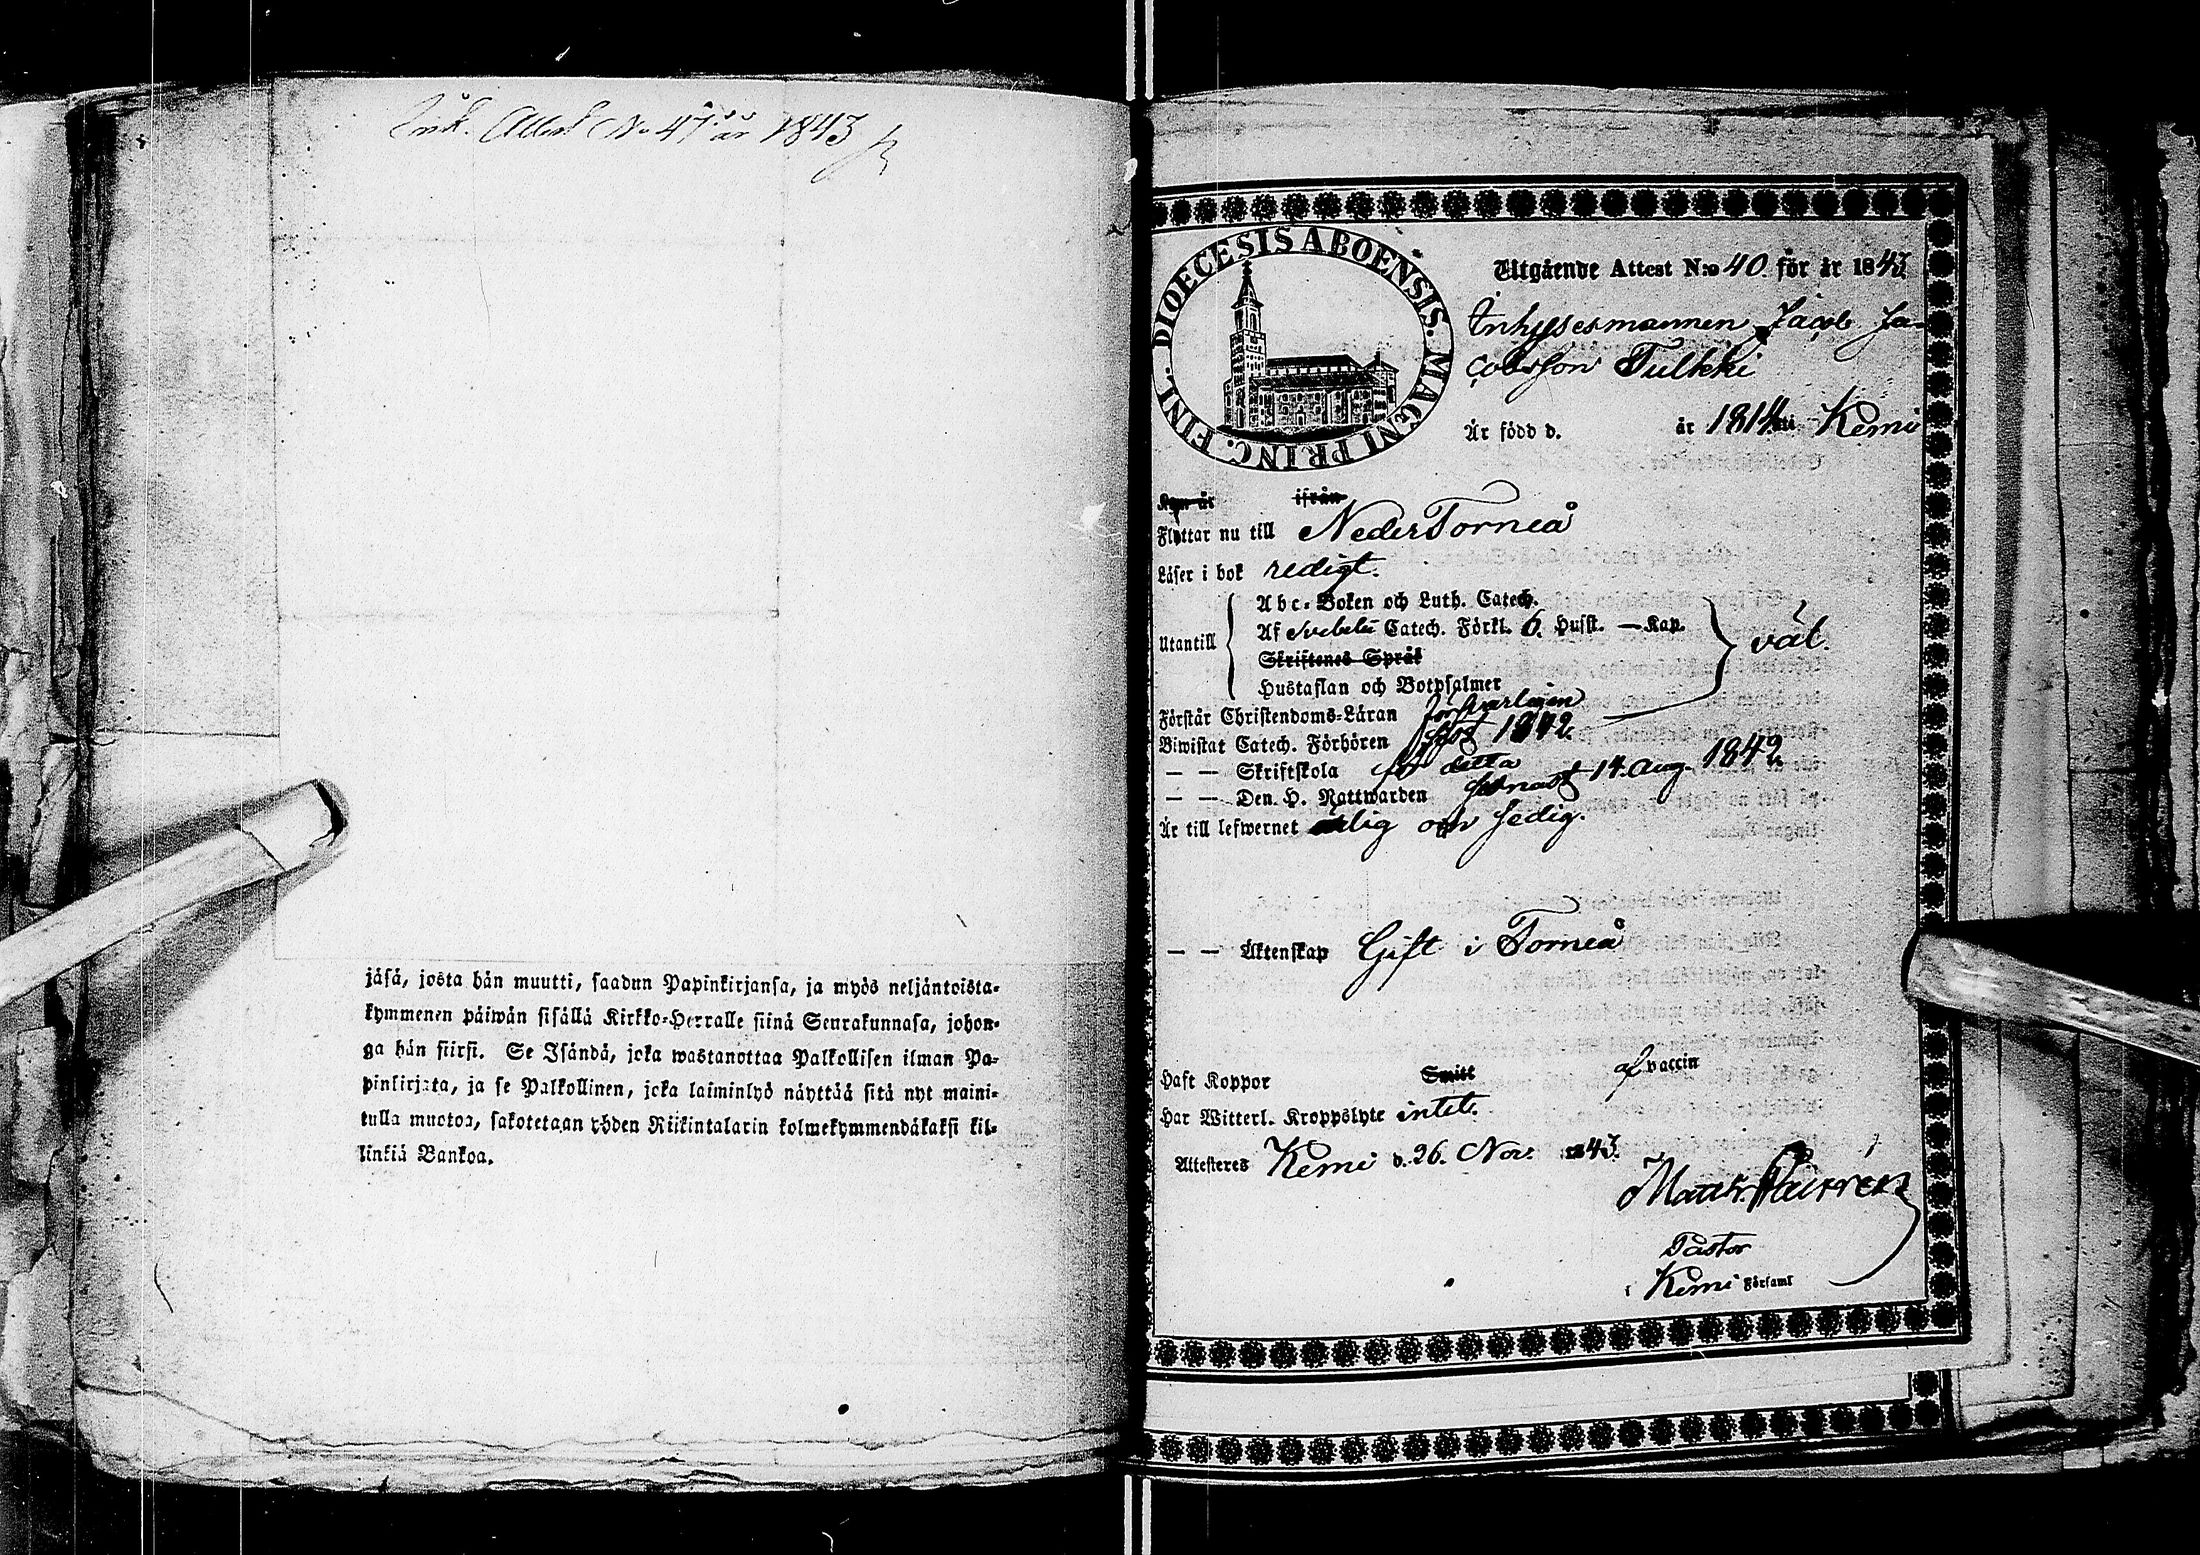 Ink. Attest No 47 år 1843
jäsä, josta hän muutti, saadun Papinkirjansa, ja myös neljäntoista-
kymmenen päiwän sisällä Kirkko-Herralle siinä Seurakunnasa, johon-
ga hän siirsi. Se Isändä, joka wastanottaa Palkollisen ilman Pa-
pinkirjata, ja se Palkollinen, joka laiminlyö näyttää sitä nyt maini-
tulla muotoa, sakotetaan yhden Riikintalarin kolmekymmendäkaksi kil-
linkiä Bankoa.
DIOECESIS ABOENSIS. MAGNI PRINC. FINL.
Utgående Attest N:o 40. för år 1843
Inhysesmannen Jacob Ja-
cobsson Tulkki
Är född d. år 1814 i Kemi
Kom år ifrån
Flyttar nu till Neder Torneå
Läser i bok redigt.
Utantill
Abc-Boken och Luth. Catech.
Af Svebelii Catech. Förkl. 6. Husst. — Kap.
Skriftenes Språk
Hustaflan och Botpsalmer
väl.
Förstår Christendoms-Läran försvarligen
Biwistat Catech. Förhören sist 1842.
— — Skriftskola för detta
— — Den H. Nattwarden senast 14. Aug. 1842
Är till lefwernet ärlig och sedig.
— — Äktenskap Gift i Torneå
Haft Koppor Smitt af vaccin
Har Witterl. Kroppslyte intet.
Attesteres Kemi d. 26. Nov. 1843.
Matth.
Pastor
i Kemi Församl